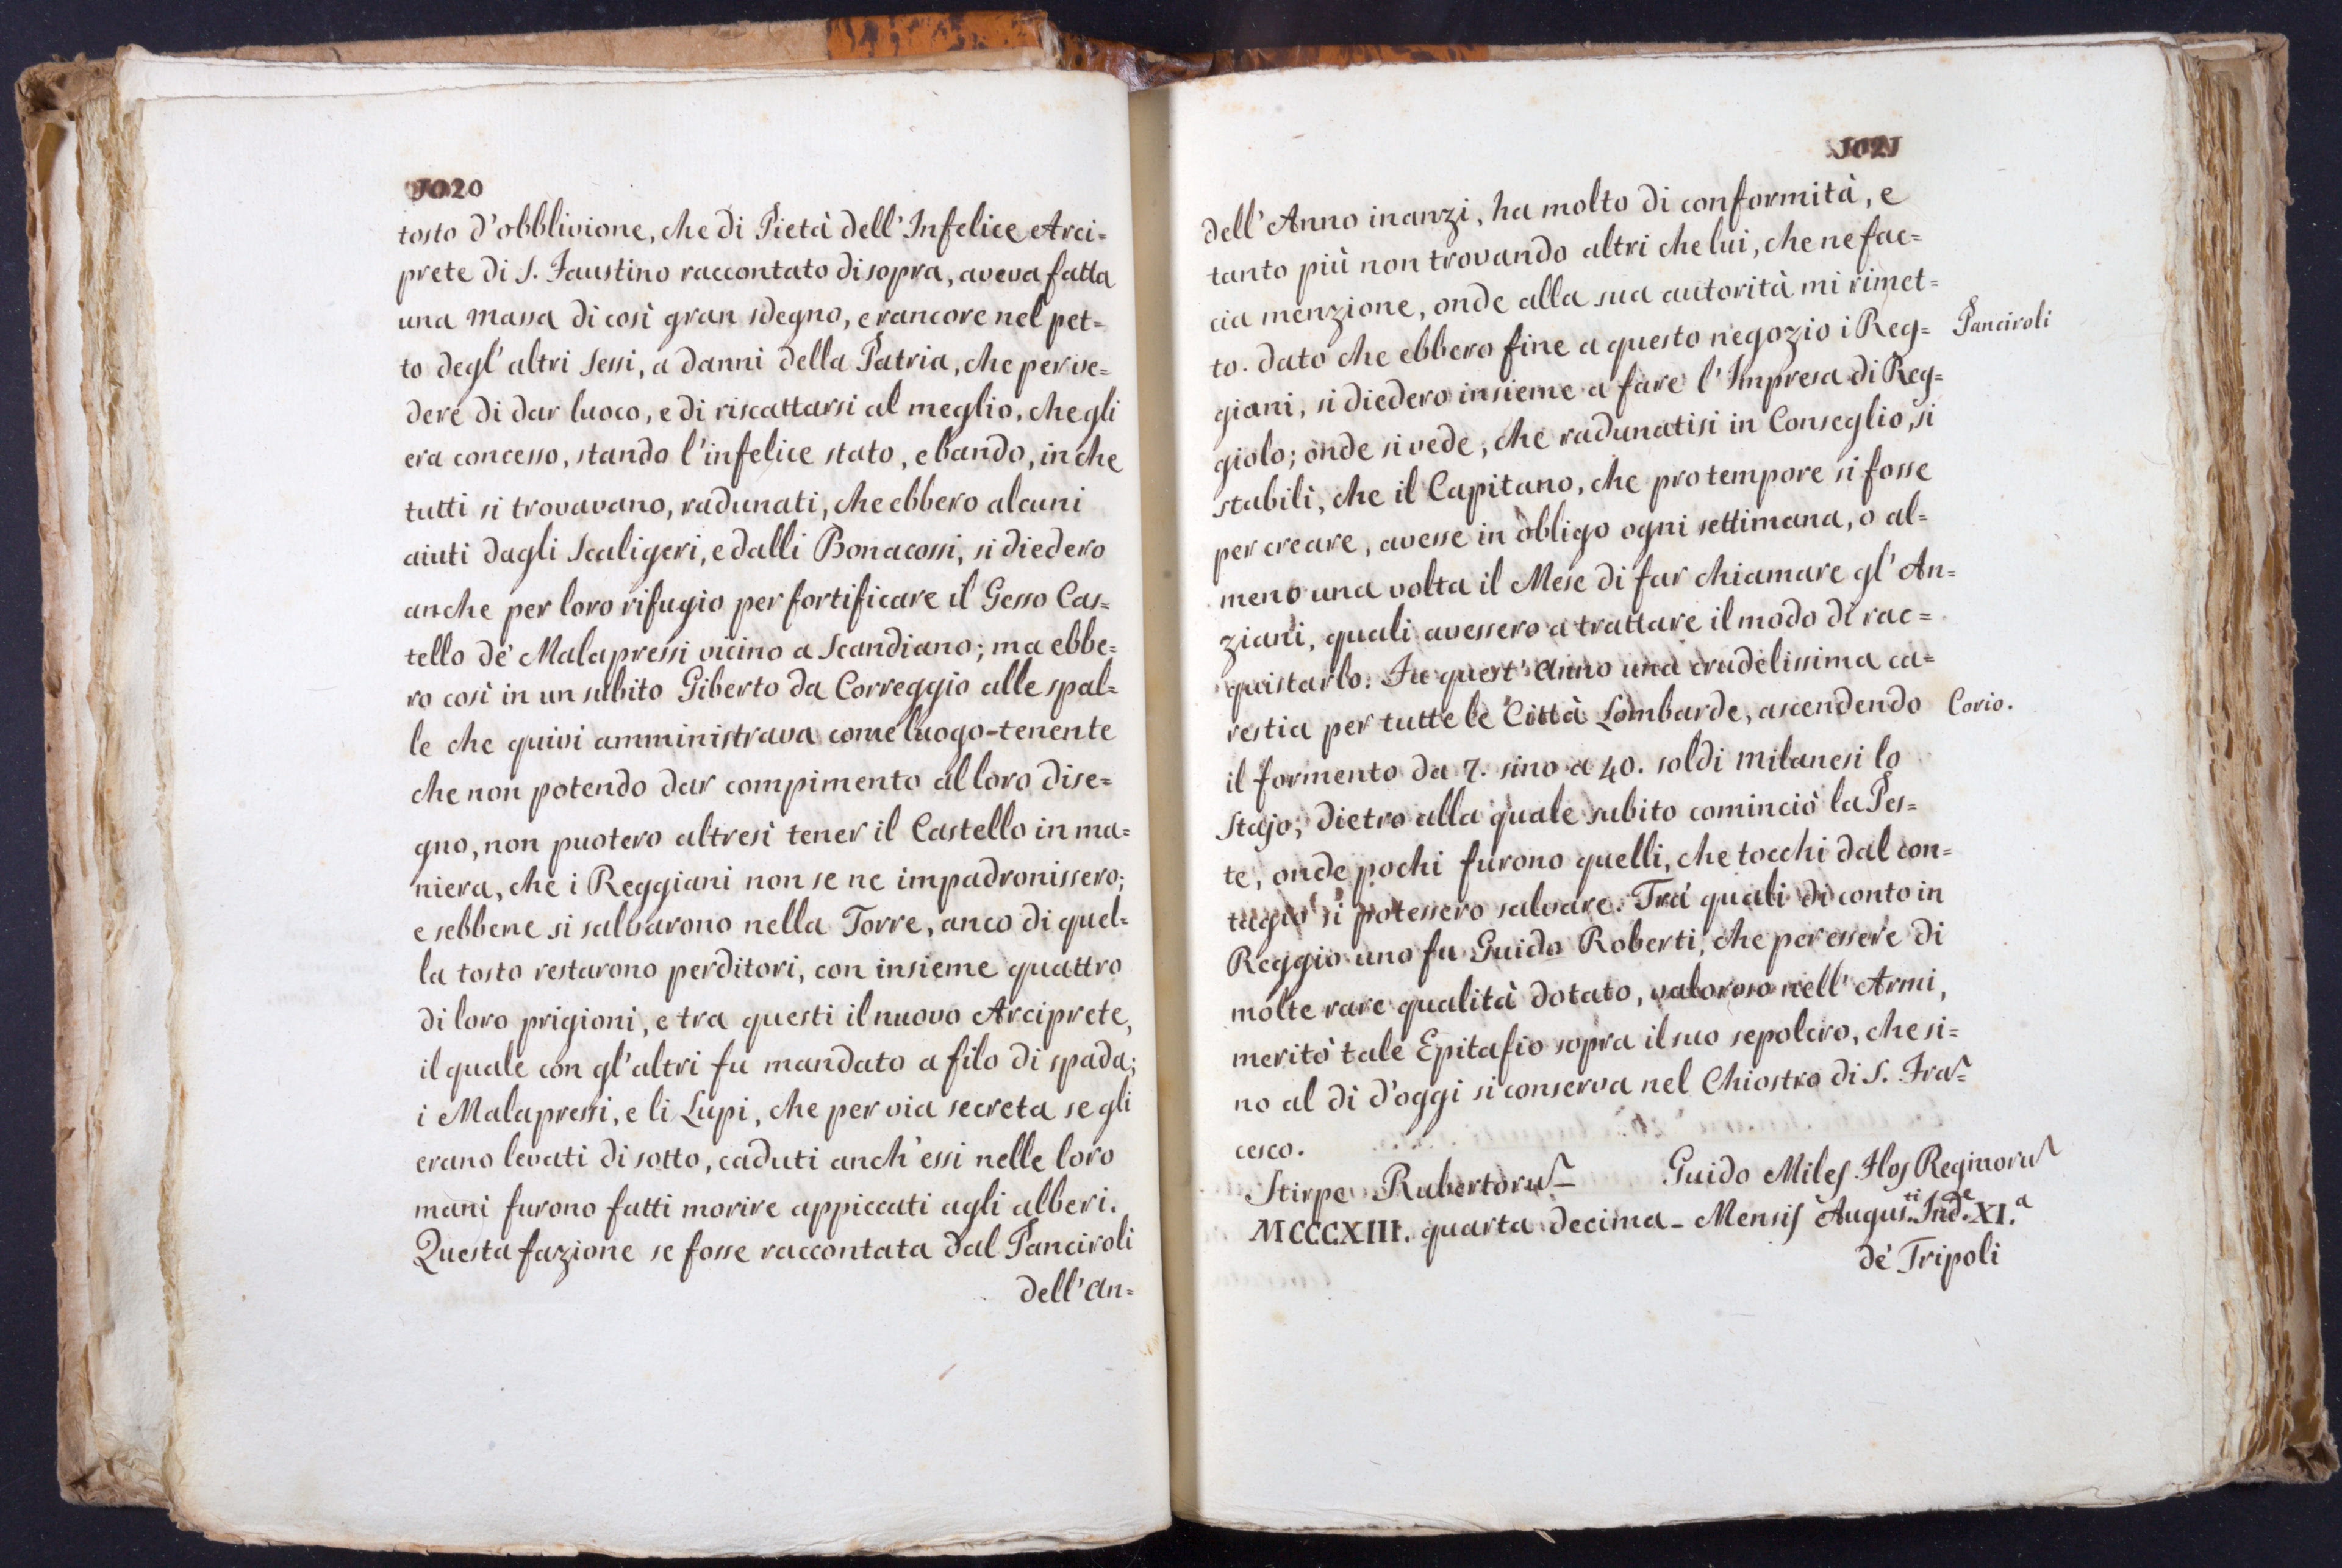 1020
tosto d'obblivione, che di Pietà dell'Infelice Arci=
prete di S. Faustino raccontato di sopra, aveva fatta
una massa di così gran sdegno, e rancore nel pet=
to degl'altri Sessi, a danni della Patria, che per ve=
dere di dar luoco, e di riscattarsi al meglio, che gli
era concesso, stando l'infelice stato, e bando, in che
tutti si trovavano, radunati, che ebbero alcuni
aiuti dagli Scaligeri, e dalli Bonacossi, si diedero
anche per loro rifugio per fortificare il Gesso Cas=
tello de' Malapressi vicino a Scandiano; ma ebbe=
ro così in un subito Giberto da Correggio alle spal=
le che quivi amministrava come luogo-tenente
che non potendo dar compimento al loro dise=
gno, non puotero altresì tener il Castello in ma=
niera, che i Reggiani non se ne impadronissero;
e sebbene si salvarono nella Torre, anco di quel=
la tosto restarono perditori, con insieme quattro
di loro prigioni, e tra questi il nuovo Arciprete,
il quale con gl'altri fu mandato a filo di spada;
i Malapressi, e li Lupi, che per via secreta se gli
erano levati di sotto, caduti anch'essi nelle loro
mani furono fatti morire appiccati agli alberi.
Questa fazione se fosse raccontata dal Panciroli
dell'An=
1021
dell'Anno inanzi, ha molto di conformità, e
tanto più non trovando altri che lui, che ne fac=
cia menzione, onde alla sua autorità mi rimet=
to. dato che ebbero fine a questo negozio i Reg= Panciroli
giani, si diedero insieme a fare l'Impresa di Reg=
giolo; onde si vede, che radunatisi in Conseglio, si
stabilì, che il Capitano, che pro tempore si fosse
per creare, avesse in obligo ogni settimana, o al=
meno una volta il Mese di far chiamare gl'An=
ziani, quali avessero a trattare il modo di rac=
quistarlo. Fu quest'Anno una crudelissima ca=
restia per tutte le Città Lombarde, ascendendo Corio.
il formento da 7. sino a 40. soldi milanesi lo
Stajo; dietro alla quale subito cominciò la Pes=
te, onde pochi furono quelli, che tocchi dal con=
tagio si potessero salvare. Trà quali di conto in
Reggio uno fu Guido Roberti, che per essere di
molte rare qualità dotato, valoroso nell'Armi,
meritò tale Epitafio sopra il suo sepolcro, che si=
no al dì d'oggi si conserva nel Chiostro di S. Fra~=
cesco.
Stirpe Rubertoru~ Guido Miles Flos Reginoru~
MCCCXIII. quarta decima - Mensis Augus.ti Ind.e XI.a
de' Tripoli